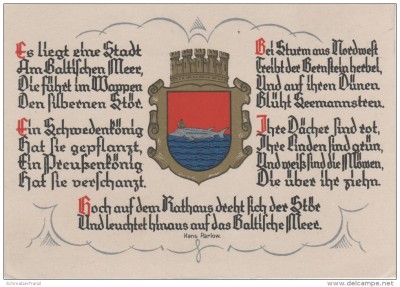 Es liegt eine Stadt
Am Baltischen Meer,
Die führt im Wappen
Den silbernen Stör.
Ein Schwedenkönig
Hat sie gepflanzt,
Ein Preußenkönig
Hat sie verschanzt.
Bei Sturm aus Nordwest
Treibt der Bernstein herbei,
Und auf ihren Dünen
Blüht Seemannstreu.
Ihre Dächer sind rot,
Ihre Linden sind grün,
Und weiß sind die Möwen,
Die über ihr ziehn.
Hoch auf dem Rathaus dreht sich der Stör
Und leuchtet hinaus auf das Baltische Meer.
Hans Parlow.
SchwarzerPirat
delcampe.net